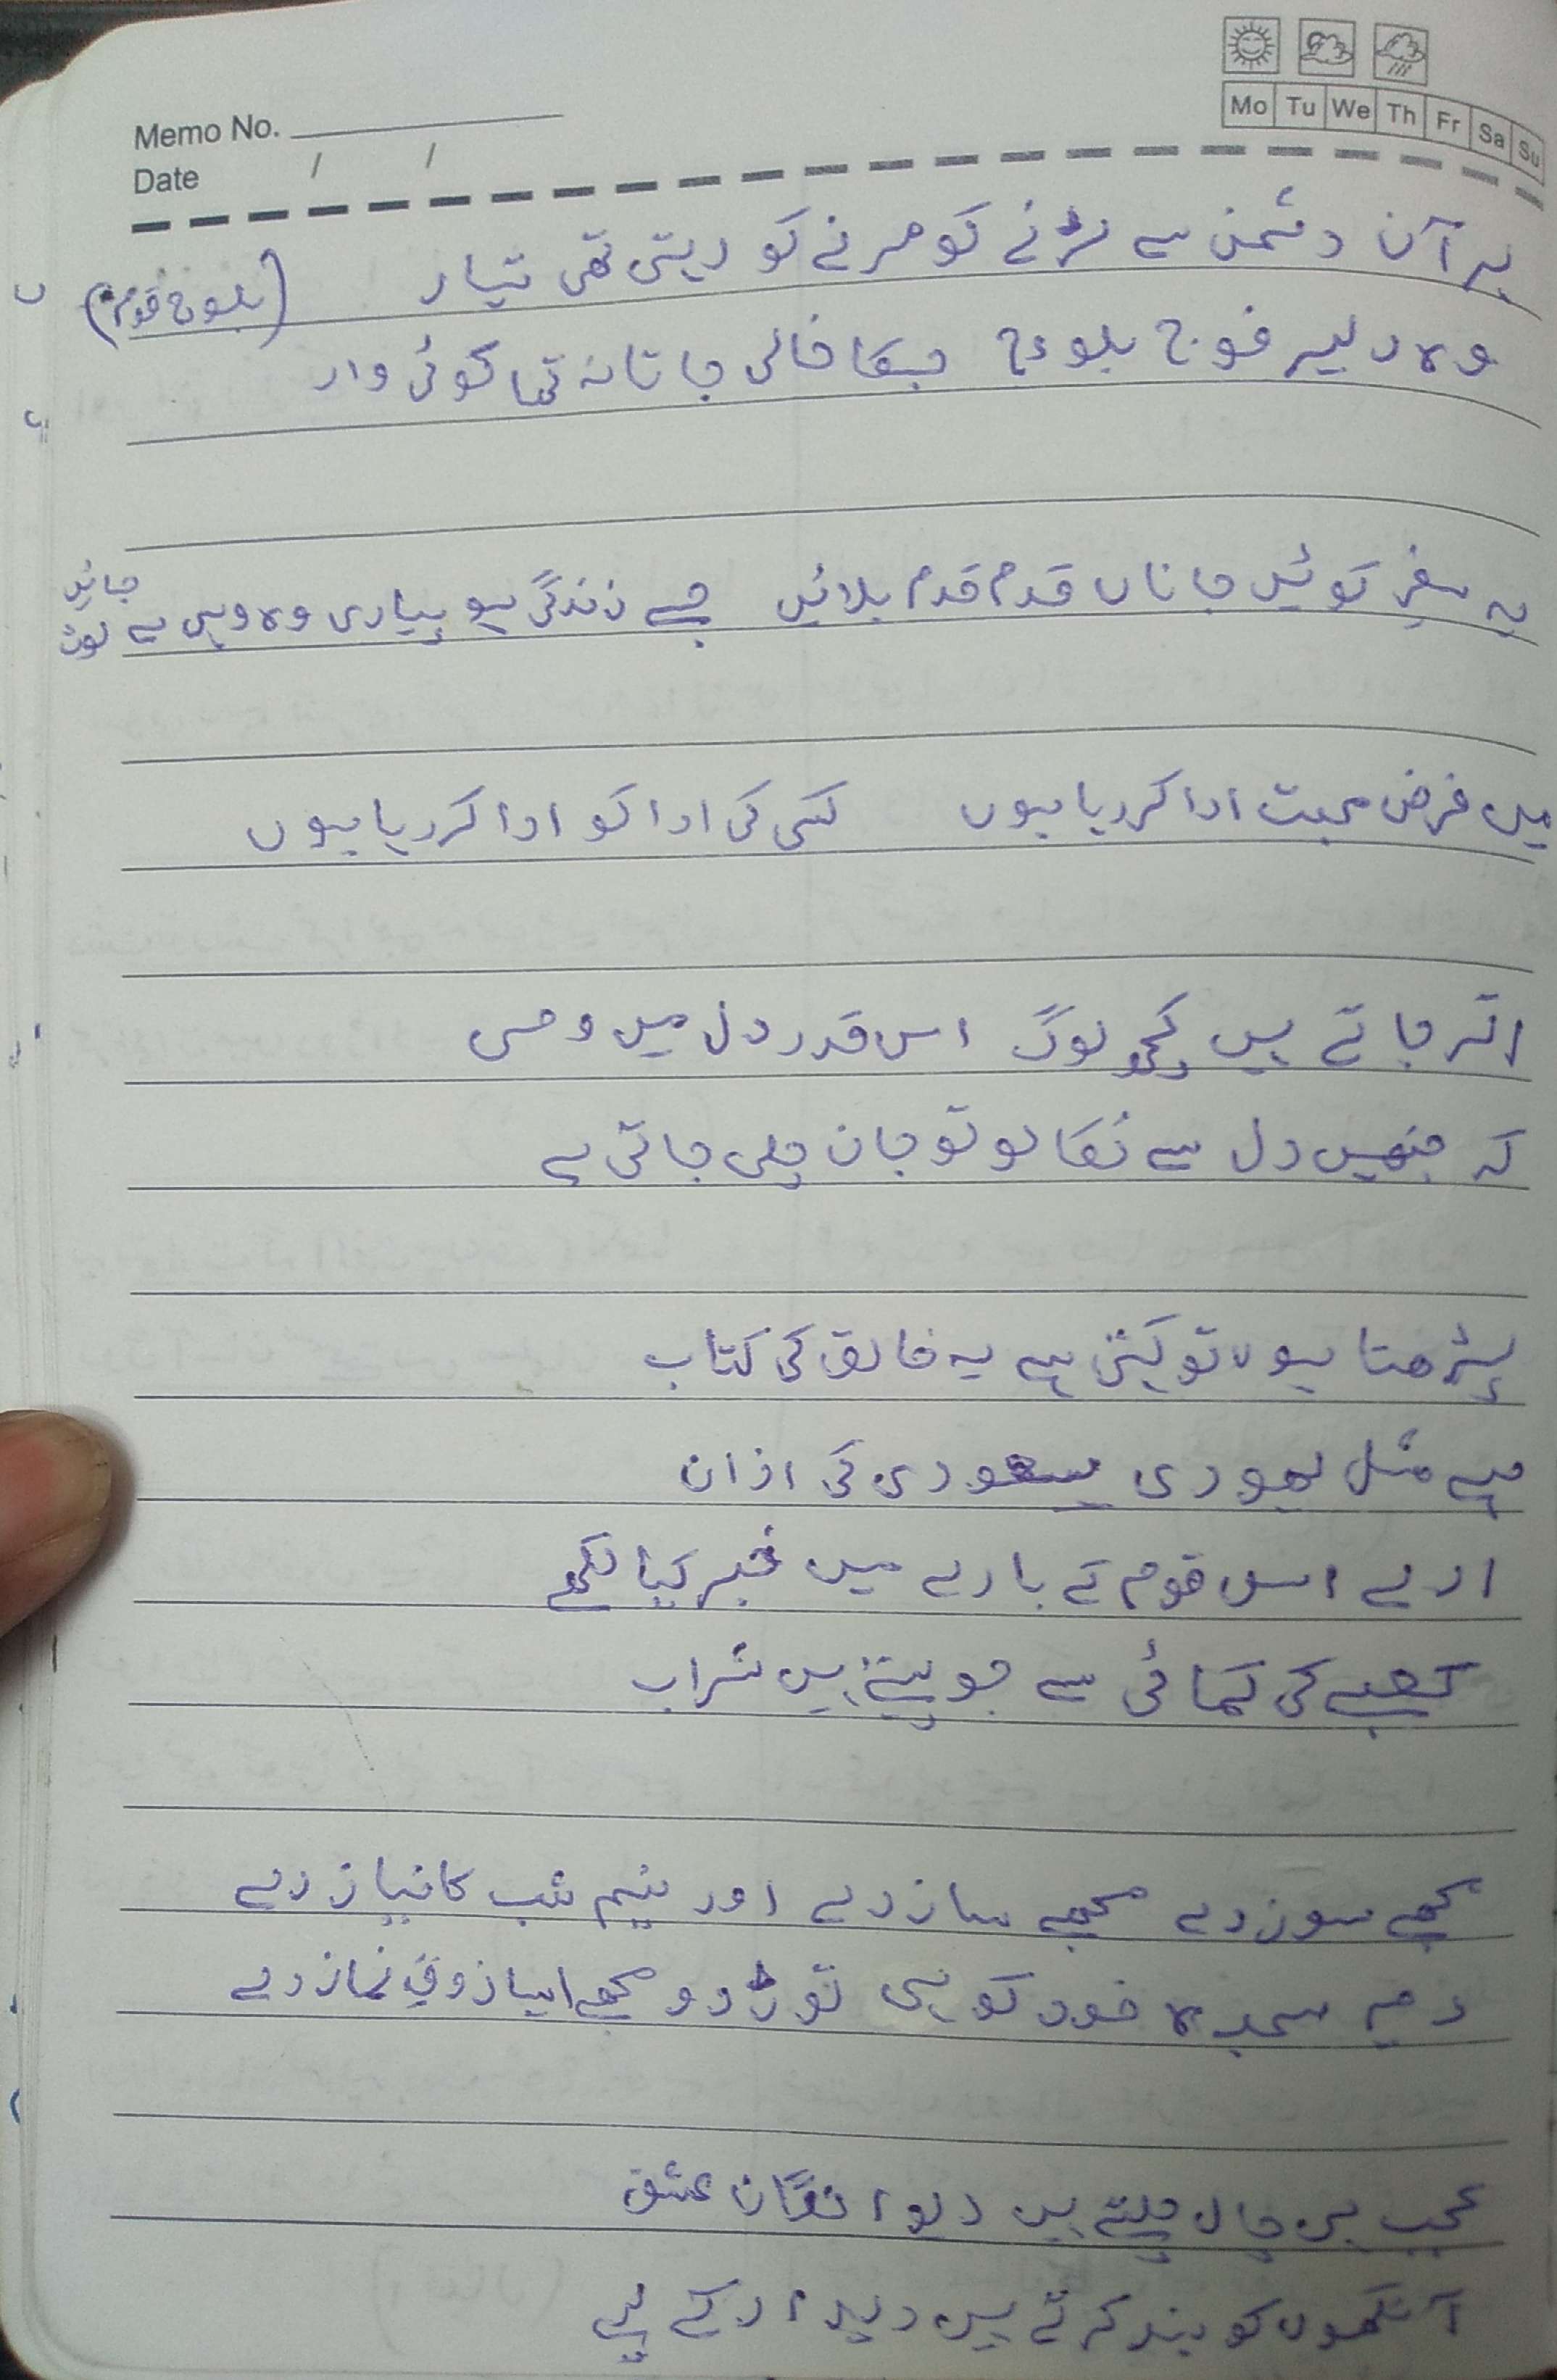 Memo No.
Date / /
Mo Tu We Th Fr Sa Su
ہر آن دشمن سے لڑنے کو مرنے کو دیتی تھی تیار (بلوچ قوم)
وہ دلیر فوج بلوچ جسکا خالی جاتا نہ تھا کوئی وار
یہ سفرِ کوئیں جاناں قدم قدم بلائیں جسے زندگی ہو پیاری وہ وہیں سے لوٹ جائیں
میں فرض محبت ادا کر رہا ہوں کسی کی ادا کو ادا کر رہا ہوں
اتر جاتے ہیں کچھ لوگ اس قدر دل میں وصی
کہ جنھیں دل سے نکالو تو جان چلی جاتی ہے
پڑھتا ہوں تو کہتی ہے یہ خالق کی کتاب
ہے مثل یہودی یہ سعودی کی اذان
ارے اس قوم کے بارے میں خبر کیا لکھے
کعبے کی کمائی سے جو پیتے ہیں شراب
مجھے سوز دے مجھے ساز دے اور نیم شب کا نیاز دے
دمِ سجدہ خود کو ہی توڑ دو مجھے ایسا ذوقِ نماز دے
عجب ہی چال چلتے ہیں دیوانگان عشق
آنکھوں کو بند کرتے ہیں دیدار کے لیے